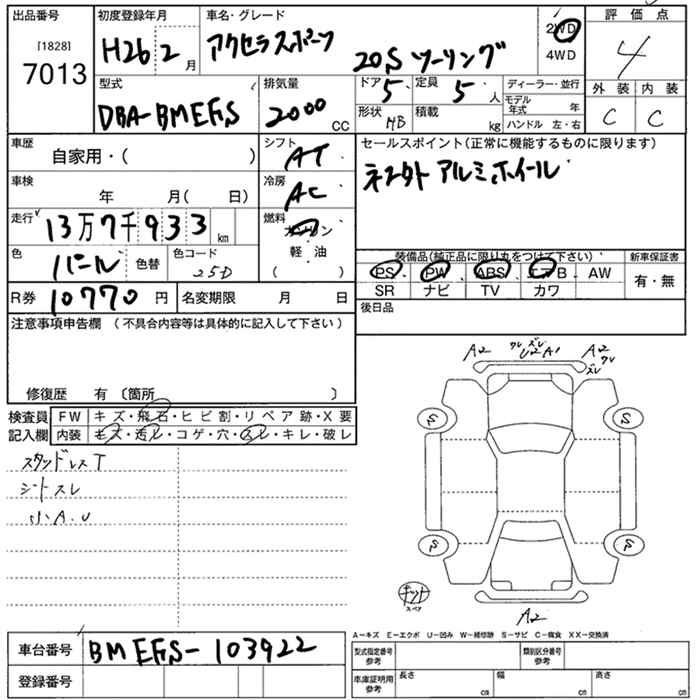 出品番号
[1828]
7013
初度登録年月
H26 2 月
車名・グレード
アクセラスポーツ
20S ツーリング
2WD
4WD
評価点
4
外装 内装
C C
型式
DBA-BMEFS
排気量
2000 CC
ドア 5
定員 5 人
形状 HB
積載 kg
ディーラー・並行
モデル年式 年
ハンドル 左・右
車歴
自家用・( )
シフト
AT
車検
年 月( 日)
冷房
AC
走行
13万7千933 km
燃料
ガソリン
軽・油
( )
色
パール
色替
色コード
25D
R券 10770 円
名変期限 月 日
セールスポイント(正常に機能するものに限ります)
アルミホイール
装備品(純正品に限り丸をつけて下さい)
新車保証書
PS PW ABS エアB AW
SR ナビ TV カワ
有・無
後日品
注意事項申告欄 (不具合内容等は具体的に記入して下さい)
修復歴 有 〔箇所 〕
検査員
記入欄
FW キズ・飛石・ヒビ割・リペア跡・X要
内装 キズ・汚レ・コゲ・穴・スレ・キレ・破レ
スタッドレスT
シートスレ
小A.U
A2
クレ ズレ
U2 A1
A2
クレ
ズレ
S
S
S
S
キット
スペア
A2
A-キズ E-エクボ U-凹み W-補修跡 S-サビ C-腐食 XX-交換済
車台番号 BMEFS-103922
登録番号
型式指定番号
参考
類別区分番号
参考
車庫証明用
参考
長さ cm
幅 cm
高さ cm